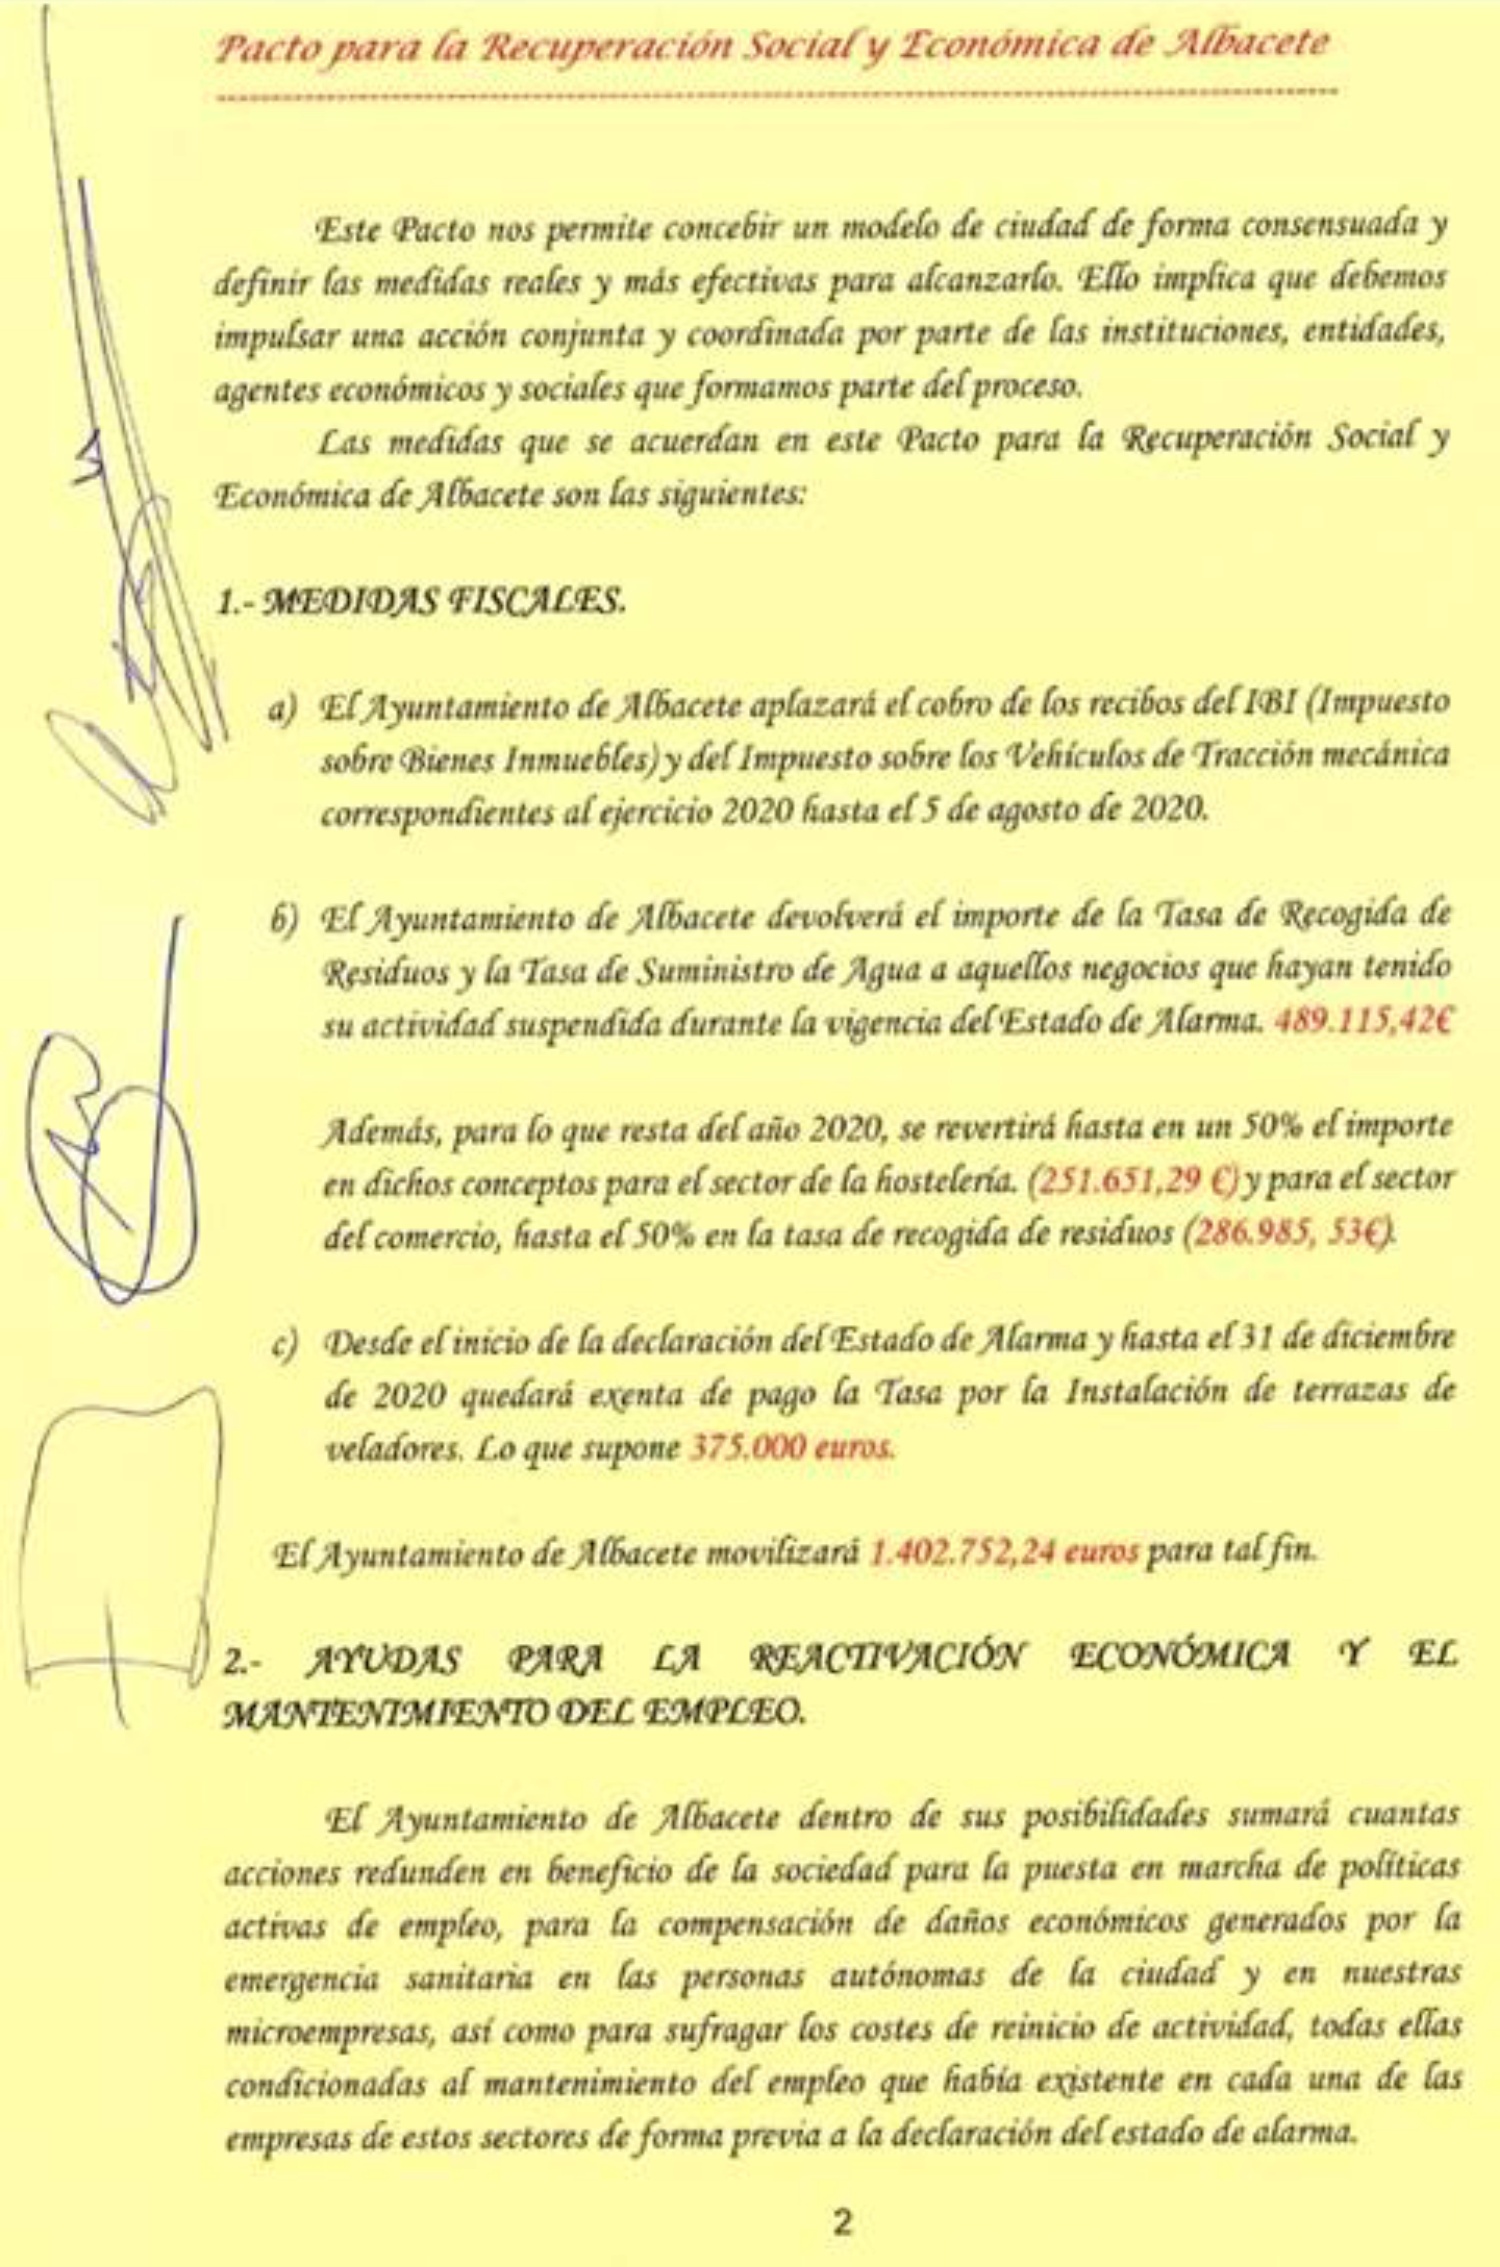 Pacto para la Recuperación Social y Económica de Albacete
Este Pacto nos permite concebir un modelo de ciudad de forma consensuada y
definir las medidas reales y más efectivas para alcanzarlo. Ello implica que debemos
impulsar una acción conjunta y coordinada por parte de las instituciones, entidades,
agentes económicos y sociales que formamos parte del proceso.
Las medidas que se acuerdan en este Pacto para la Recuperación Social y
Económica de Albacete son las siguientes:
1.- MEDIDAS FISCALES.
a) El Ayuntamiento de Albacete aplazará el cobro de los recibos del IBI (Impuesto
sobre Bienes Inmuebles) y del Impuesto sobre los Vehículos de Tracción mecánica
correspondientes al ejercicio 2020 hasta el 5 de agosto de 2020.
b) El Ayuntamiento de Albacete devolverá el importe de la Tasa de Recogida de
Residuos y la Tasa de Suministro de Agua a aquellos negocios que hayan tenido
su actividad suspendida durante la vigencia del Estado de Alarma. 489.115,42€
Además, para lo que resta del año 2020, se revertirá hasta en un 50% el importe
en dichos conceptos para el sector de la hostelería. (251.651,29 €) y para el sector
del comercio, hasta el 50% en la tasa de recogida de residuos (286.985, 53€).
c) Desde el inicio de la declaración del Estado de Alarma y hasta el 31 de diciembre
de 2020 quedará exenta de pago la Tasa por la Instalación de terrazas de
veladores. Lo que supone 375.000 euros.
El Ayuntamiento de Albacete movilizará 1.402.752,24 euros para tal fin.
2.- AYUDAS PARA LA REACTIVACIÓN ECONÓMICA Y EL
MANTENIMIENTO DEL EMPLEO.
El Ayuntamiento de Albacete dentro de sus posibilidades sumará cuantas
acciones redunden en beneficio de la sociedad para la puesta en marcha de políticas
activas de empleo, para la compensación de daños económicos generados por la
emergencia sanitaria en las personas autónomas de la ciudad y en nuestras
microempresas, así como para sufragar los costes de reinicio de actividad, todas ellas
condicionadas al mantenimiento del empleo que había existente en cada una de las
empresas de estos sectores de forma previa a la declaración del estado de alarma.
2